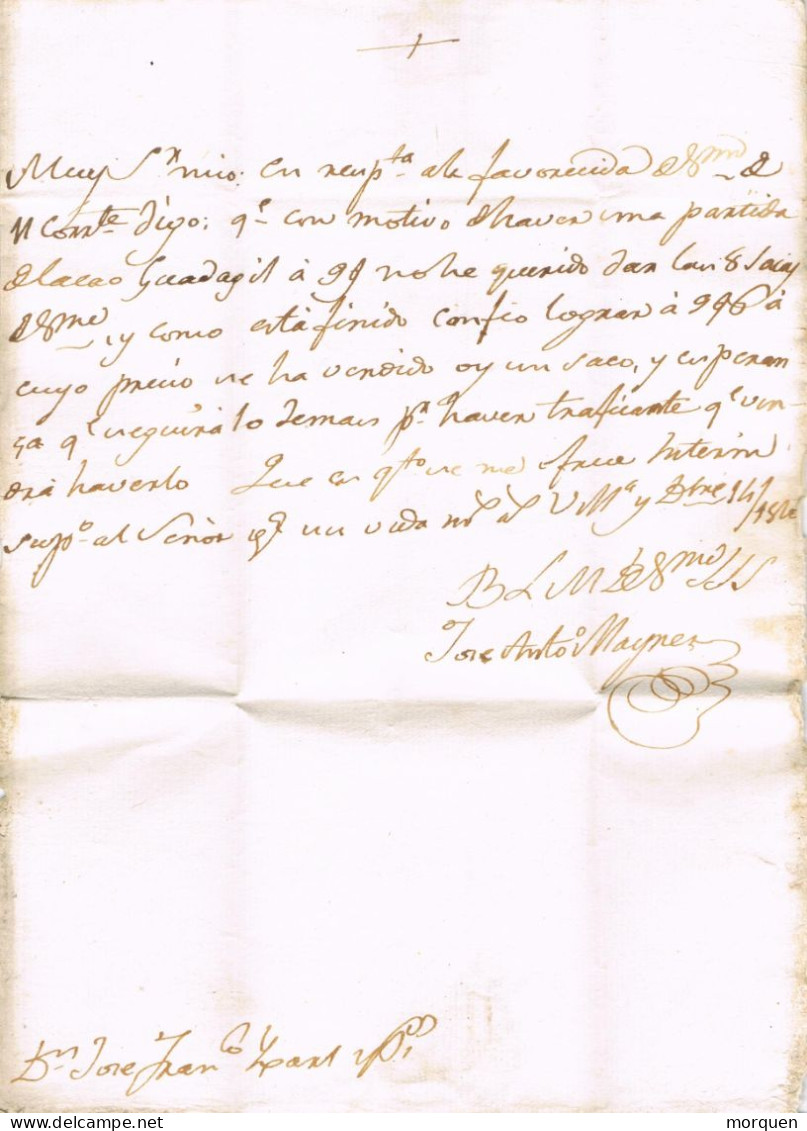 Muy S.r mio: en resp.ta a la favorecida de Vmd de
11 corr.te digo: q.e con motivo de haver una partida
de cacao Guadaqil à 9 no he querido dar los 8 sacos
de Vmd, y como està finido confio lograr à 9 6 à
cuyo precio se ha vendido oy un saco, y esperan
sa q.e seguirà lo demas p.r haver traficante q.e ven
drà haverlo Que es q.to se me ofrece Interin
sup.co al Señor g.e su vida m.s a.s y Dbre 14
B L M de Vmd SSS
Jose Anto.o Mayner
D.n Jose Fran.co
morquen